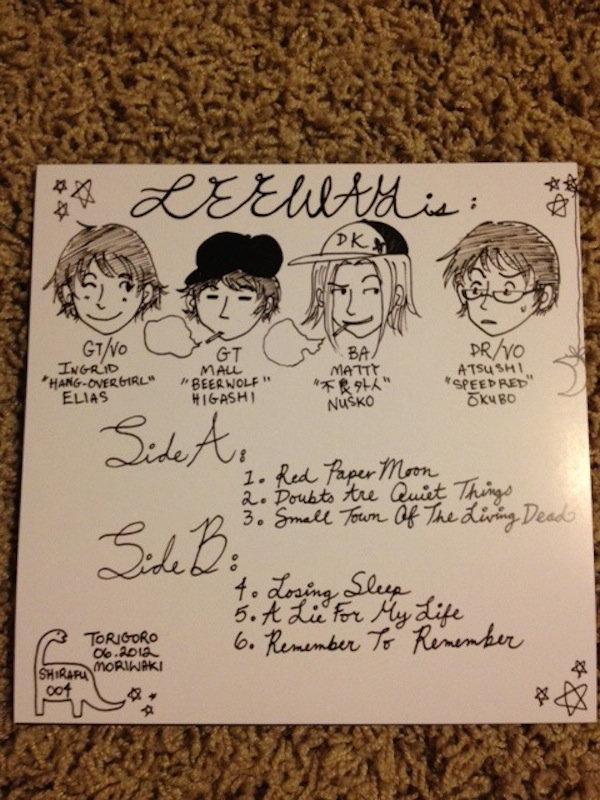 LEEWAY is:
DK
GT/VO
INGRID
"HANG-OVERGIRL"
ELIAS
GT
MALL
"BEERWOLF"
HIGASHI
BA
MATTY
"不良外人"
NUSKO
DR/VO
ATSUSHI
"SPEED RED"
ŌKUBO
Side A:
1. Red Paper Moon
2. Doubts Are Quiet Things
3. Small Town Of The Living Dead
Side B:
4. Losing Sleep
5. A Lie For My Life
6. Remember To Remember
TORIGORO
06.2012
MORIWAKI
SHIRAFU
004